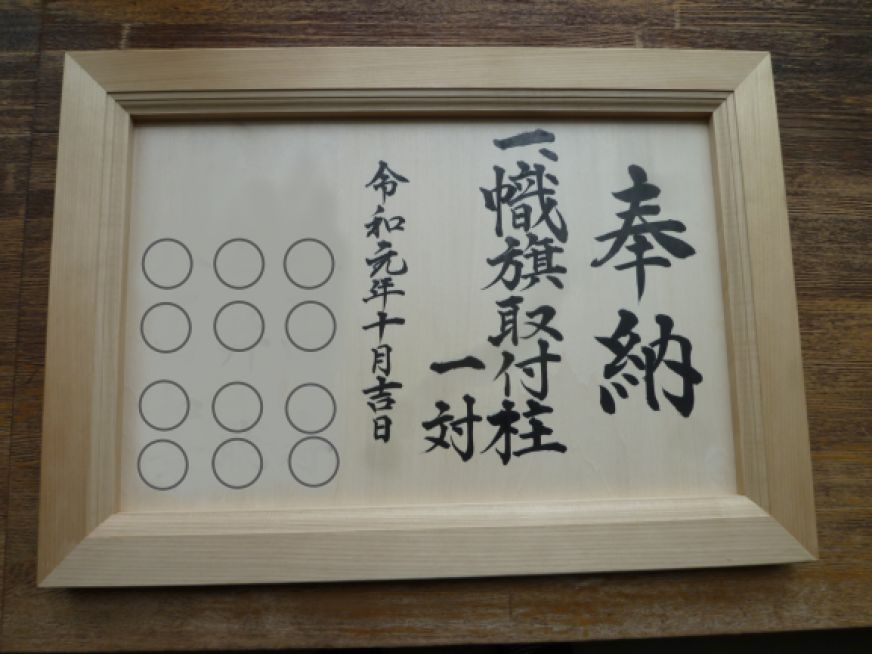 奉納
一、幟旗取付柱
一対
令和元年十月吉日
〇〇〇〇
〇〇〇〇
〇〇〇〇